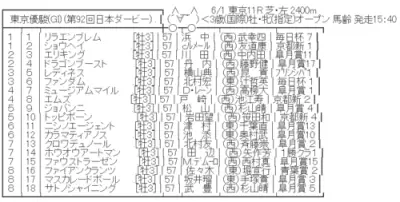 東京優駿(GI)(第92回日本ダービー)
6/1 東京11R 芝・左2400m
(´▽`) <3歳(国際)牡・牝(指定)オープン 馬齢 発走15:40
1 1 リラエンブレム [牡3] 57 浜中 (西)武幸四 毎日杯7
1 2 ショウヘイ [牡3] 57 ルメール (西)友道康 京都新1
2 3 エリキング [牡3] 57 川田 (西)中内田 皐月賞11
2 4 ドラゴンブースト [牡3] 57 丹内 (西)藤野健 皐月賞
3 5 レディネス [牡3] 57 横山典 (西)
3 6 ファンダム [牡3] 57 北村宏 (東)辻哲英 毎日杯1
4 7 ミュージアムマイル [牡3] 57 D・レーン (西)高柳大 皐月賞1
4 8 エムズ [牡3] 57 戸崎 (西)池江寿 京都新
5 9 ジョバンニ [牡3] 57 松山 (西)杉山晴 皐月賞4
5 10 トッピボーン [牡3] 57 岩田望 (西) 京都新
6 11 ニシノエージェント [牡3] 57 津村 (東)千葉直 皐月賞13
6 12 カラマティアノス [牡3] 57 池添 (東)奥村武 皐月賞
7 13 クロワデュノール [牡3] 57 北村友 (西)斉藤崇 皐月賞2
7 14 ホウオウアートマン [牡3] 57 田辺 (西)矢作芳 1勝クラ1
7 15 ファウストラーゼン [牡3] 57 M.デムーロ (西)西村真 皐月賞15
8 16 ファイアンクランツ [牡3] 57 佐々木 (東)堀宣行 青葉賞2
8 17 マスカレードボール [牡3] 57 坂井瑠 (東)手塚貴 皐月賞3
8 18 サトノシャイニング [牡3] 57 武豊 (西)杉山晴 皐月賞5